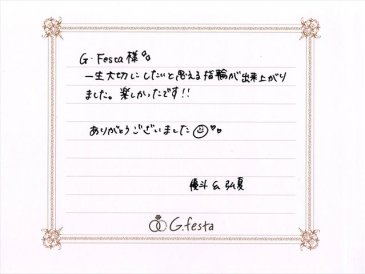 G・Festa 様
一生大切にしたいと思える指輪が出来上がり
ました。楽しかったです!!
ありがとうございました
優斗 & 弘夏
G.festa